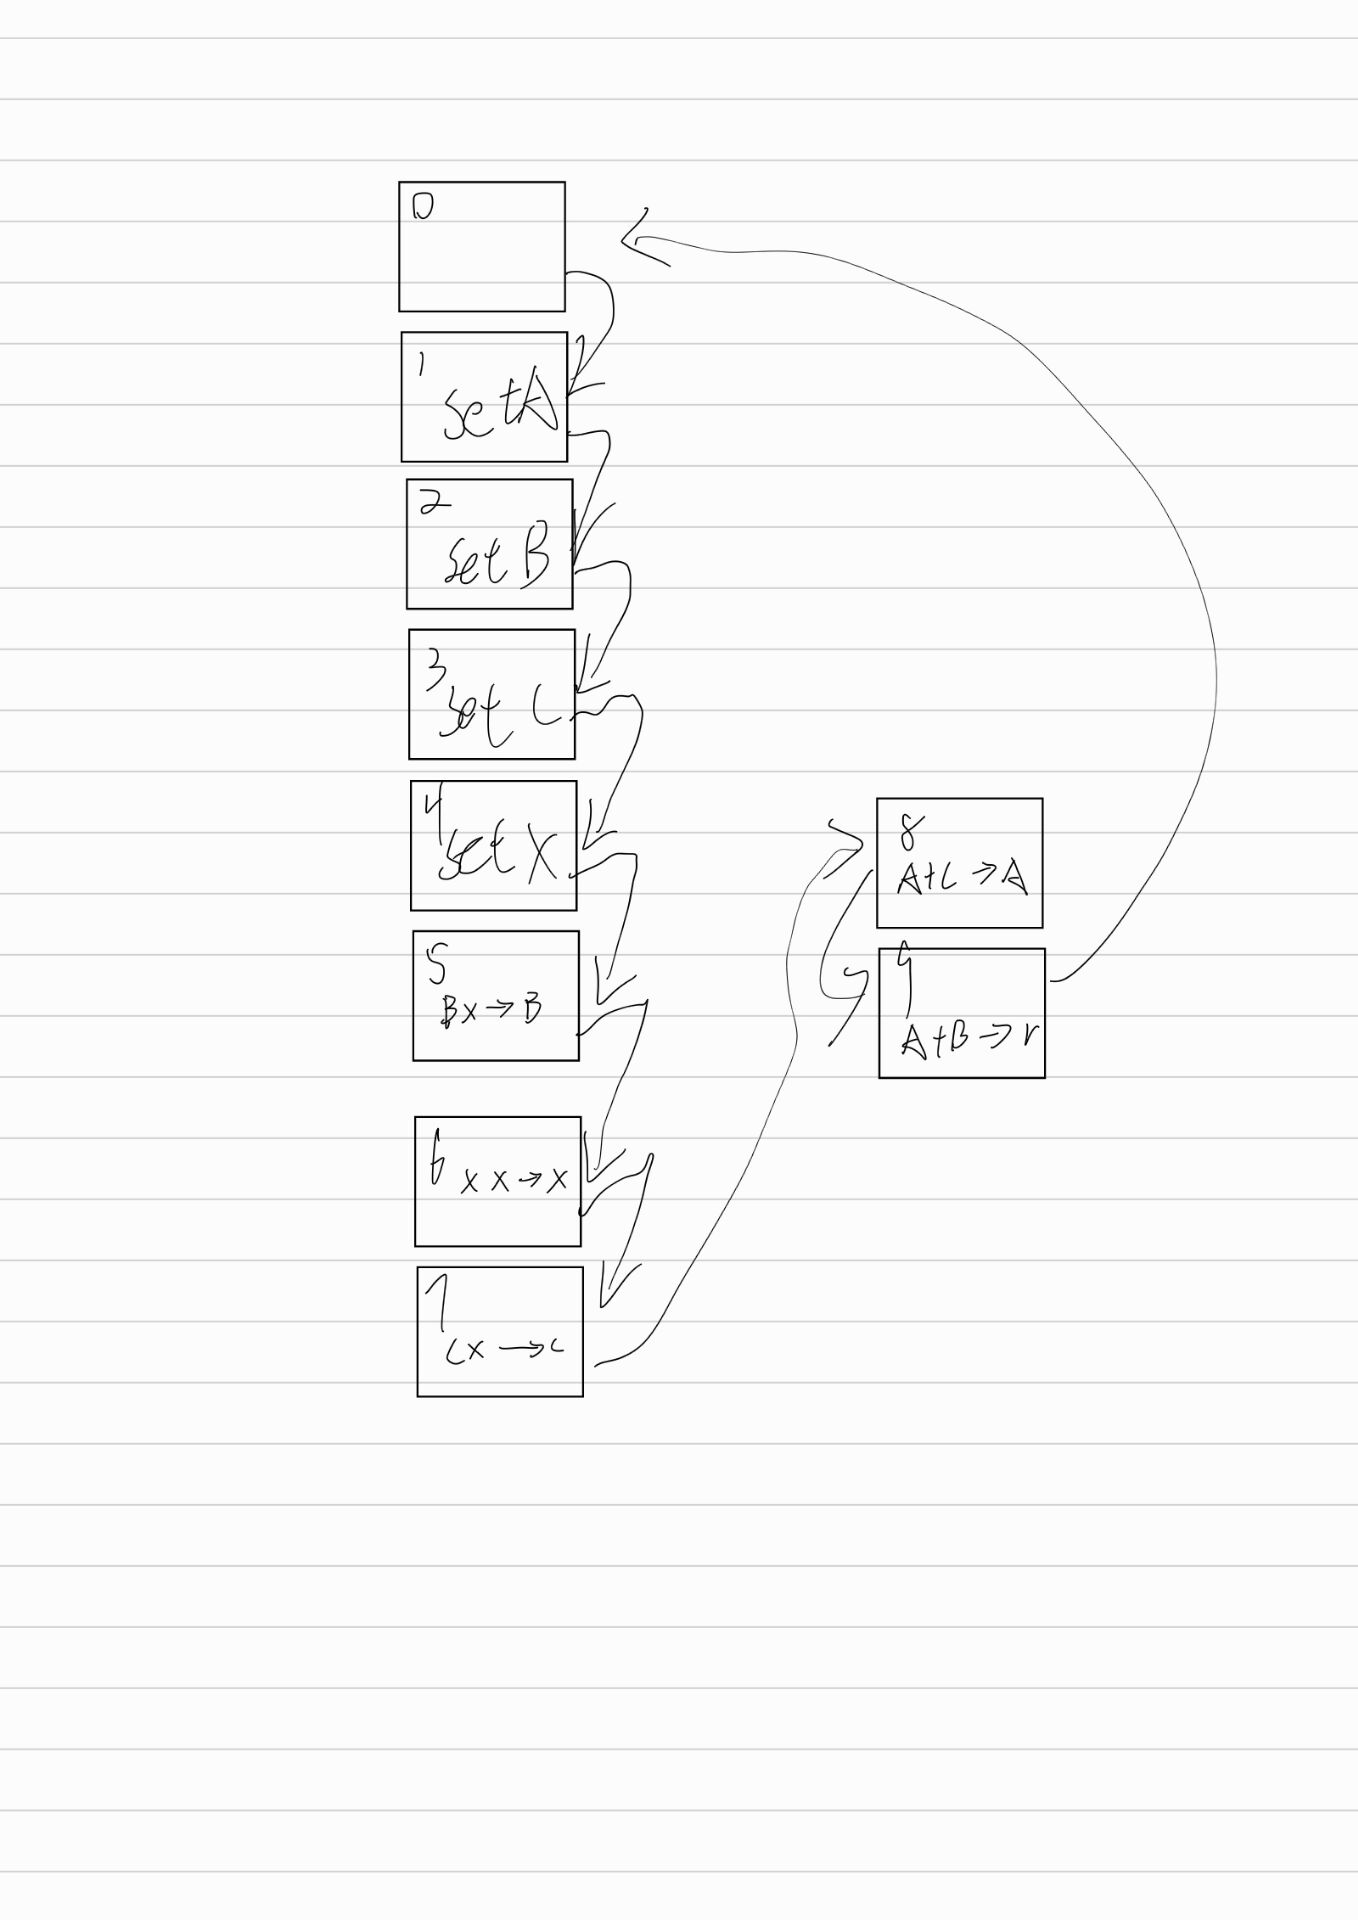 0
1
set A
2
set B
3
set C
4
set X
5
Bx→B
6
xx→x
7
Cx→c
8
A+C→A
9
A+B→r